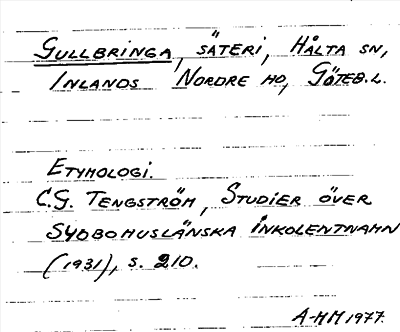 GULLBRINGA, SÄTERI, HÅLTA SN,
INLANDS NORDRE HD, GÖTEB.L.
ETYMOLOGI.
C.G. TENGSTRÖM, STUDIER ÖVER
SYDBOHUSLÄNSKA INKOLENTNAMN
(1931), S. 210.
A-MM 1977.